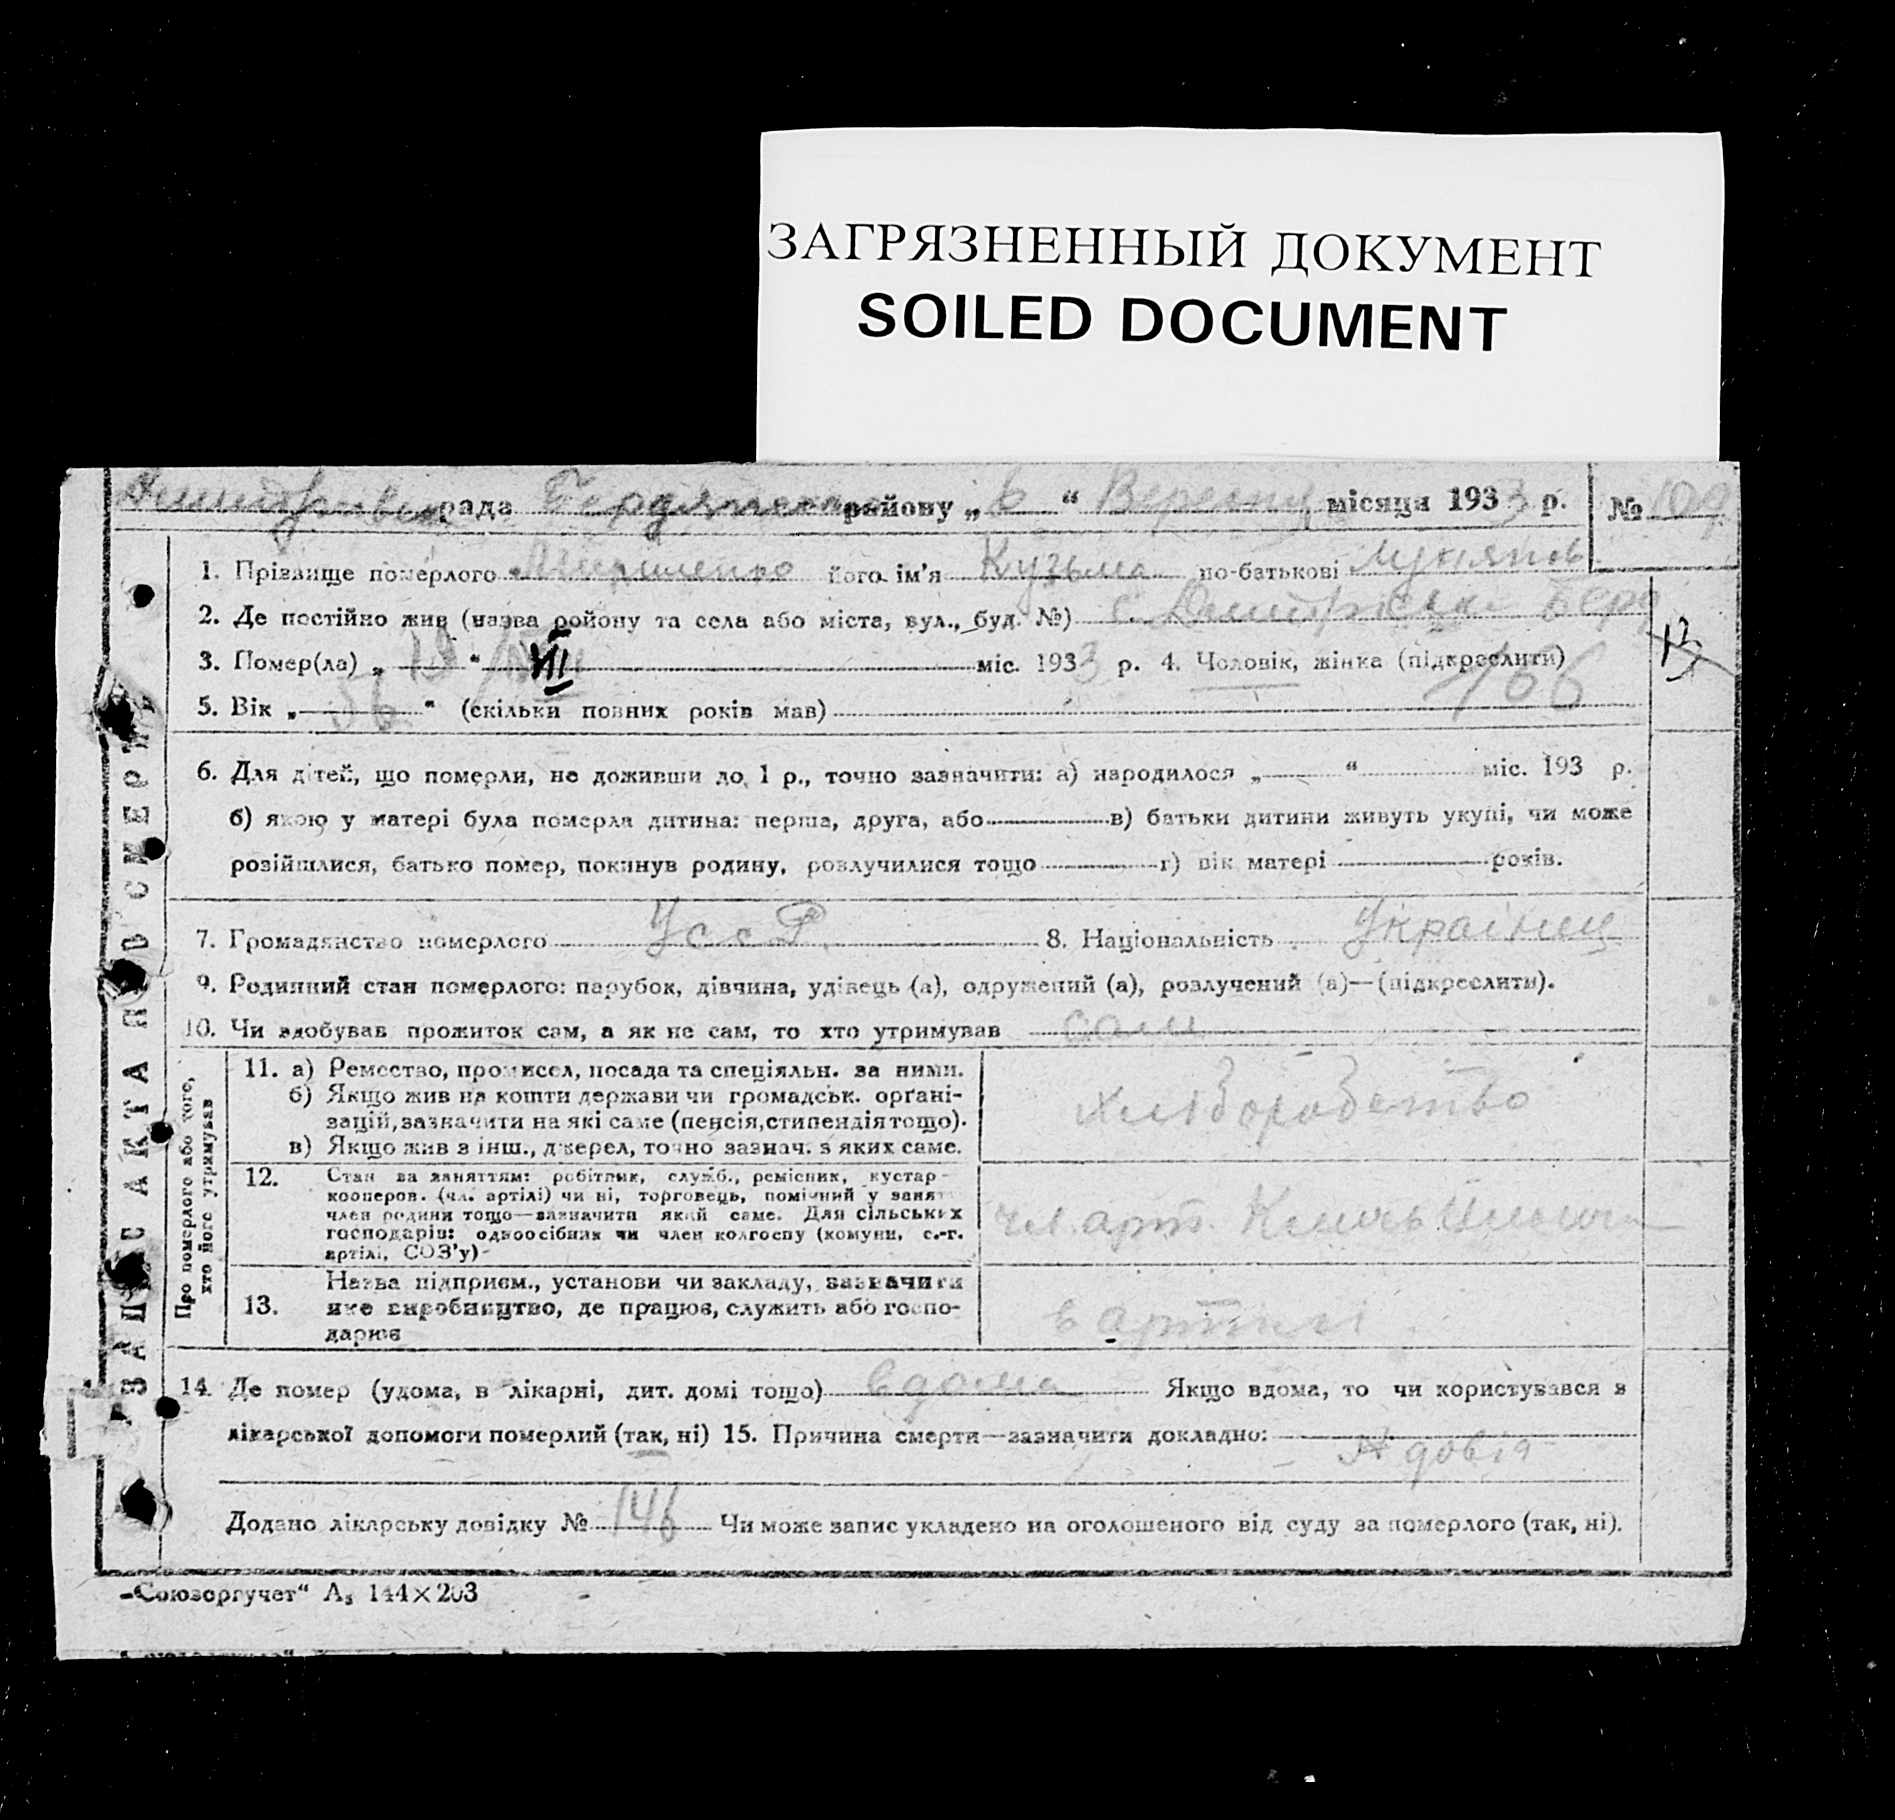 ЗАГРЯЗНЕННЫЙ ДОКУМЕНТ
SOILED DOCUMENT
рада Бердянского району „6“ Вересня місяця 1933 р. № 109
1. Прізвище померлого його ім'я Кузьма по-батькові
2. Де постійно жив (назва району та села або міста, вул., буд. №) с.
3. Помер(ла) „ “ VIII міс. 1933 р. 4. Чоловік, жінка (підкреслити)
166
5. Вік „56“ (скільки повних років мав)
6. Для дітей, що померли, не доживши до 1 р., точно зазначити: а) народилося „ “ міс. 193 р.
б) якою у матері була померла дитина: перша, друга, або в) батьки дитини живуть укупі, чи може
розійшлися, батько помер, покинув родину, розлучилися тощо г) вік матері років.
7. Громадянство померлого УССР. 8. Національність Українец
9. Родинний стан померлого: парубок, дівчина, удівець (а), одружений (а), розлучений (а)—(підкреслити).
10. Чи здобував прожиток сам, а як не сам, то хто утримував сам
ЗАПИС АКТА ПРО СМЕРТЬ
Про померлого або того,
хто його утримував
11. а) Ремество, промисел, посада та спеціяльн. за ними.
б) Якщо жив на кошти держави чи громадськ. орґані-
зацій, зазначити на які саме (пенсія, стипендія тощо).
в) Якщо жив з інш., джерел, точно зазнач. з яких саме.
хліборобство
12. Стан за заняттям: робітник, служб., ремісник, кустар-
кооперов. (чл. артілі) чи ні, торговець, помічний у занят.
член родини тощо—зазначити який саме. Для сільських
господарів: одноосібник чи член колгоспу (комуни, с.-г.
артілі, СОЗ'у)-
чл. арт.
13. Назва підприєм., установи чи закладу, зазначити
яке виробництво, де працює, служить або госпо-
дарює
в артили
14. Де помер (удома, в лікарні, дит. домі тощо) вдома Якщо вдома, то чи користувався з
лікарської допомоги померлий (так, ні) 15. Причина смерти—зазначити докладно:
Додано лікарську довідку № 146 Чи може запис укладено на оголошеного від суду за померлого (так, ні).
„Союзоргучет“ А₅ 144×203